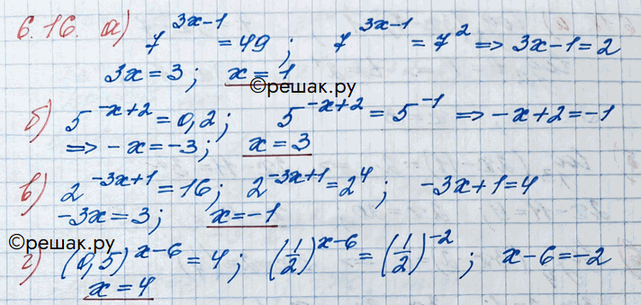 6.16. а) 7^{3x-1} = 49; 7^{3x-1} = 7^2 => 3x-1=2
3x=3; x=1
©решак.ру
б) 5^{-x+2} = 0,2; 5^{-x+2} = 5^{-1} => -x+2=-1
=> -x=-3; x=3
в) 2^{-3x+1} = 16; 2^{-3x+1} = 2^4; -3x+1=4
-3x=3; x=-1
©решак.ру
г) (0,5)^{x-6} = 4; (1/2)^{x-6} = (1/2)^{-2}; x-6=-2
x=4